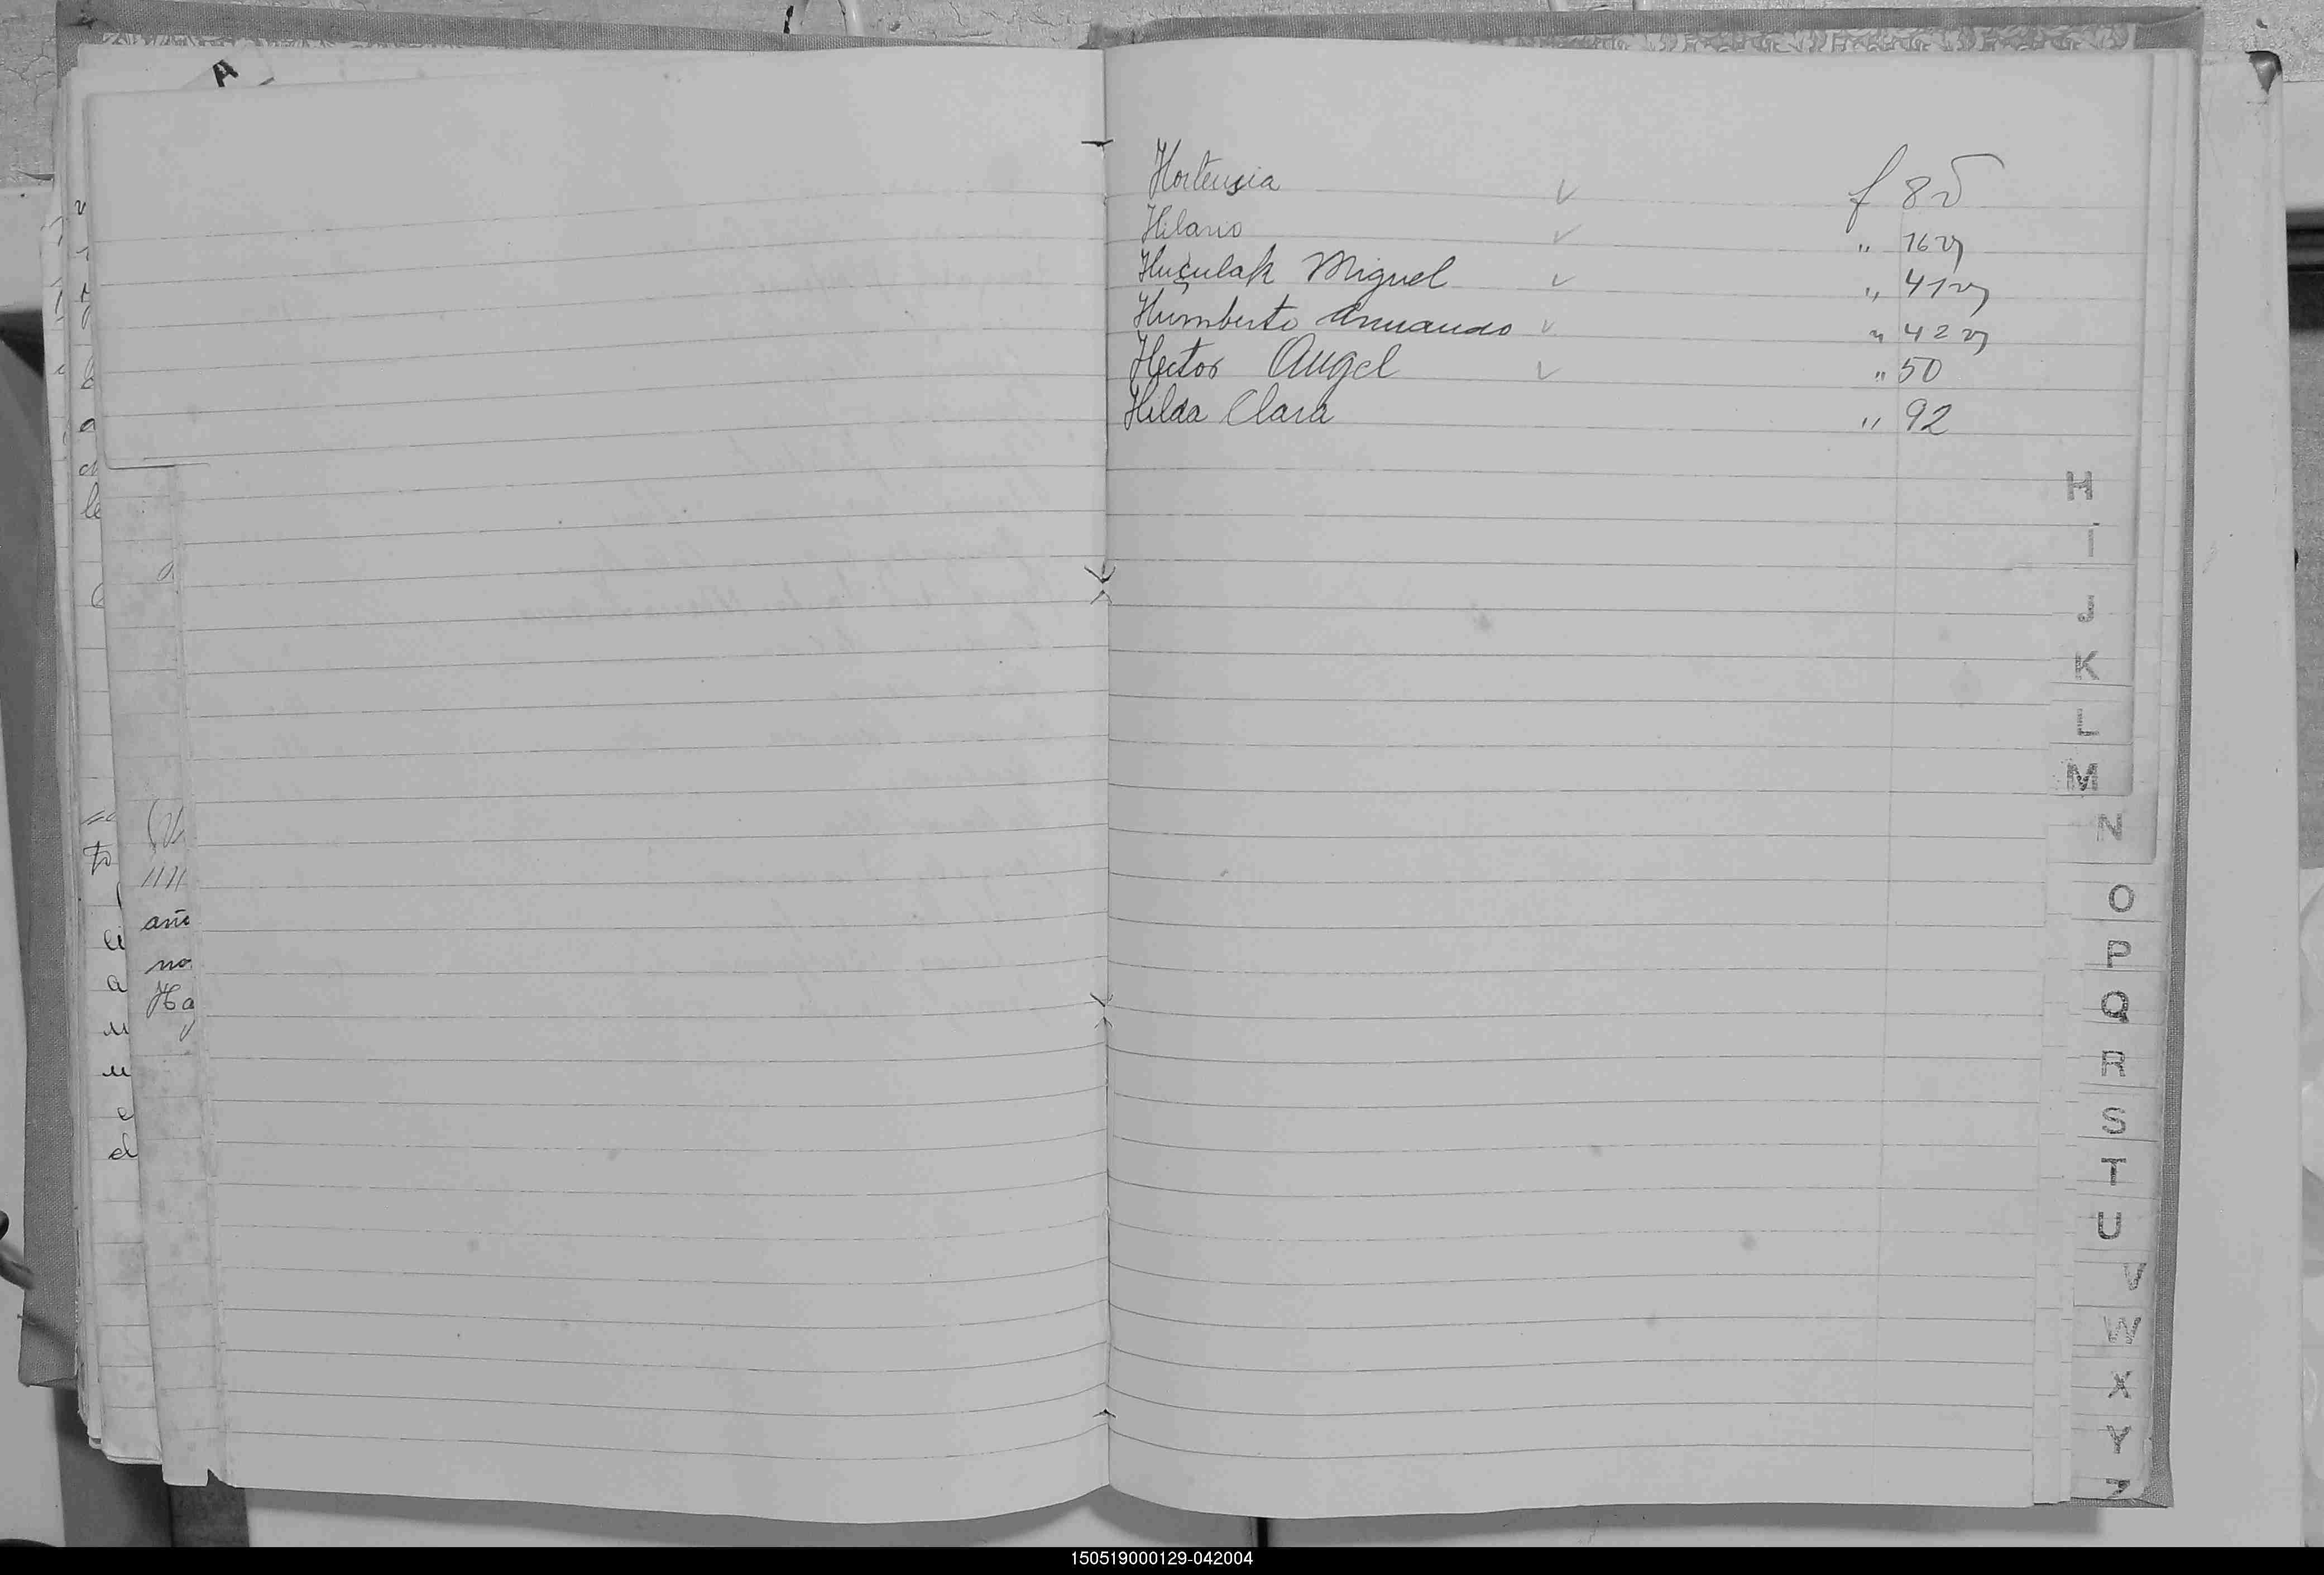 A
Hortensia ✓ f 8v
Hilario ✓ " 16 v
Huculak Miguel ✓ " 41 v
Humberto Armando ✓ " 42 v
Hector Angel ✓ " 50
Hilda Clara " 92
H
I
J
K
L
M
N
O
P
Q
R
S
T
U
V
W
X
Y
Z
no
Ha
150519000129-042004